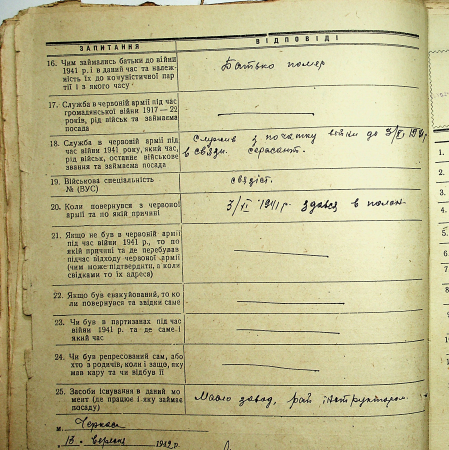 ЗАПИТАННЯ
ВІДПОВІДІ
16. Чим займались батьки до війни
1941 р. і в даний час та належ-
ність їх до комуністичної пар
тії і з якого часу
Батько помер
17. Служба в червоній армії під час
громадянської війни 1917—22
років, рід військ та займаєма
посада
18. Служба в червоній армії під
час війни 1941 року, який час,
рід військ, останнє військове
звання та займаєма посада
Служив з початку війни до 7/VI 1941 р.
в связи. сержант.
19. Військова спеціальність
№ (ВУС)
связіст.
20. Коли повернувся з червоної
армії та по якій причині
7/VI 1941 р. здався в полон
21. Якщо не був в червоній армії
під час війни 1941 р., то по
якій причині та де перебував
під час відходу червоної армії
(чим може підтвердити, а коли
свідками то їх адреса)
22. Якщо був евакуйований, то ко
ли повернувся та звідки саме
23. Чи був в партизанах під час
війни 1941 р. та де саме і
який час
24. Чи був репресований сам, або
хто з родичів, коли і защо, яку
мав кару та чи відбув її
25. Засоби існування в даний мо
мент (де працює і яку займає
посаду)
Масло завод, рай інструктором.
м. Черкаси
13. вересня 1942 р.
1.
2.
3.
4.
5.
6.
7.
8
9
1